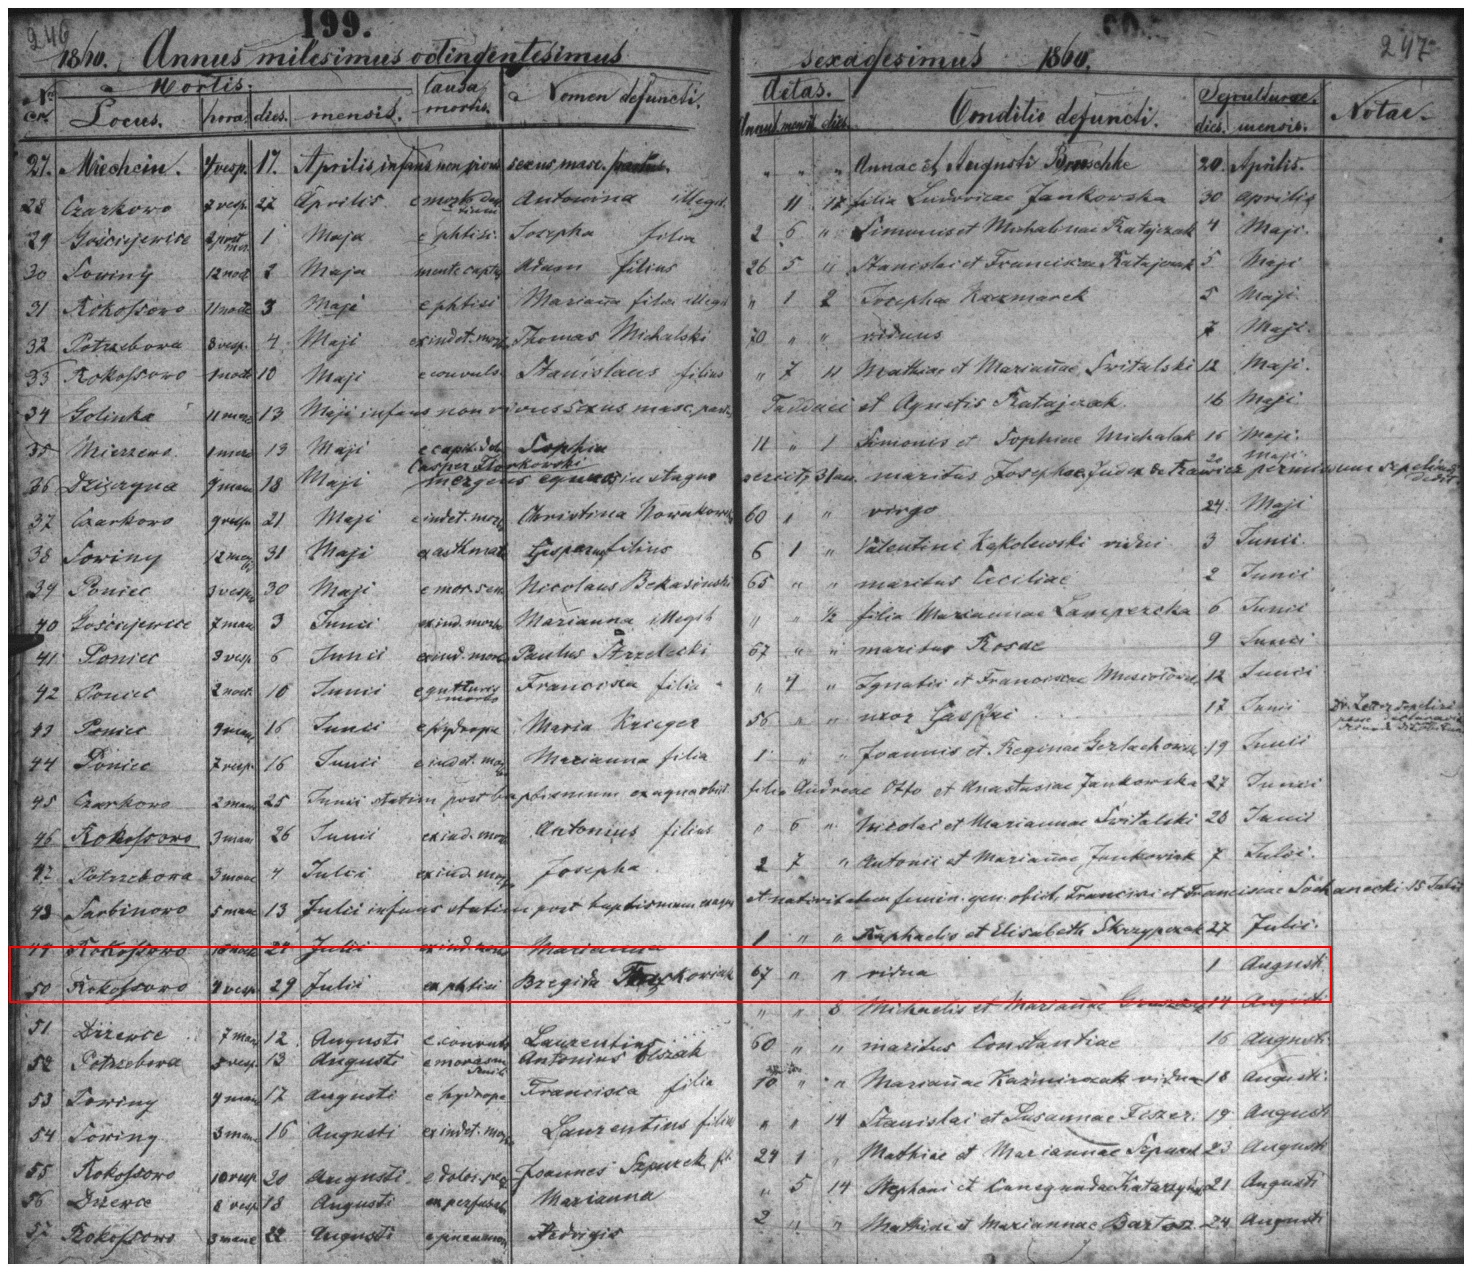 246 199. 247
1860. Annus milesimus octingentesimus sexagesimus 1860.
Mortis. causa mortis. Nomen defuncti. Aetas. Conditio defuncti. Sepulturae. Notae.
Nr cr. Locus. hora. dies. mensis. Annus mensis dies dies. mensis.
27. Miechcin. 4 vesp. 17. Aprilis infans non vivus sexus masc. " " " Annae et Augusti 20. Aprilis.
28 Czarkowo 7 vesp. 27 Aprilis Antonina illegit. " 11 17 filia Ludovicae Jankowska 30 Aprilis
29 Gościejewice 2 post mer. 1 Maja e phtisi Josepha filia 2 6 " Simonis et Michalinae Ratajczak 4 Maji.
30 Sowiny 12 noct. 2 Maja mente captus Adam filius 26 5 11 Stanislai et Franciscae Ratajczak 5 Maji
31 Rokossowo 11 nocte 3 Maji e phtisi Marianna filia illegit " 1 2 Josephae Kaczmarek 5 Maji.
32 Potrzebowa 8 vesp. 4 Maji ex indet. morb Thomas Michalski 70 " " viduus 7 Maji.
33 Rokossowo 1 noct 10 Maji e convuls. Stanislaus filius " 7 11 Mathiae et Mariannae Switalski 12 Maji.
34 Golinka 11 mane 13 Maji infans non vivus sexus masc. Taddaei et Agnetis Ratajczak 16 Maji
35 1 mane 13 Maji Sophia 11 " 1 Simonis et Sophiae Michalak 16 Maji.
36 Dzięczyna 9 mane 18 Maji Casper mergens equos in stagno 31 an. maritus Josephae, Judex de permissum sepeliendi dedit. 20 Maji.
37 Czarkowo 9 vesp. 21 Maji e indet. morb Christina Nowakowska 60 " " virgo 24. Maji
38 Sowiny 12 31 Maji ex asthmat. Gasparus filius 6 1 " Valentini Kąkolewski vidui 3 Junii.
39 Poniec 3 vesp. 30 Maji e mor. sen. Nicolaus Bekasinski 65 " " maritus Ceciliae 2 Junii
40 Gościejewice 7 mane 3 Junii ex ind. morb Marianna illegit " " ½ filia Mariannae Lamperska 6 Junii
41 Poniec 3 vesp. 6 Junii ex ind. morb Paulus Strzelecki 67 " " maritus Rosae 9 Junii
42 Poniec 2 noct. 10 Junii e gutturis morbo Francisca filia " 4 " Ignatii et Franciscae 12 Junii
43 Poniec 9 mane 16 Junii e hydrope Maria Krieger 56 " " uxor Gaspari 17 Junii
44 Poniec 7 vesp. 16 Junii e indet. mor. Marianna filia 1 " " Joannis et Reginae Gerlachowski 19 Junii
45 Czarkowo 2 mane 25 Junii statim post baptismum ex aqua obiit filia Andreae Otto et Anastasiae Jankowska 27 Junii
46 Rokossowo 3 mane 26 Junii ex ind. mor. Antonius filius " 6 " Nicolai et Mariannae Switalski 28 Junii
47 Potrzebowa 3 mane 4 Julii ex ind. mor. Josepha 2 7 " Antonii et Mariannae Jankowiak 7 Julii.
48 Sarbinowo 5 mane 13 Julii infans statim post baptismum ex aqua et nativitatem femin. gen. obiit, Francisci et Franciscae Sochanecki 15 Julii
49 Rokossowo 10 noct 24 Julii ex ind. morb Marianna 1 " " Raphaelis et Elisabeth Skrzypczak 27 Julii.
50 Rokossowo 4 vesp. 29 Julii ex phtisi Bregida 67 " " vidua 1 Augusti
51 Drzewce 7 mane 12 Augusti e convuls Laurentius " " 8 Michaelis et Mariannae 14 Augusti
52 Potrzebowa 5 vesp. 13 Augusti Antonius Olszak 60 " " maritus Constantiae 16 Augusti
53 Sowiny 4 mane 17 Augusti e hydrope Francisca filia 10 " " Mariannae Kaźmirczak vidua 18 Augusti.
54 Sowiny 3 mane 16 Augusti ex indet. mor. Laurentius filius " " 14 Stanislai et Susannae Fiszer. 19 Augusti
55 Rokossowo 10 vesp 20 Augusti e dolor. Joannes Szpurek 24 1 " Mathiae et Mariannae 23 Augusti
56 Drzewce 2 vesp 18 Augusti Marianna " 5 14 Stephani et Cunegundae 21 Augusti
57 Rokossowo 3 mane 22 Augusti e pneumon. Hedvigis 2 " " Mathiae et Mariannae 24 Augusti